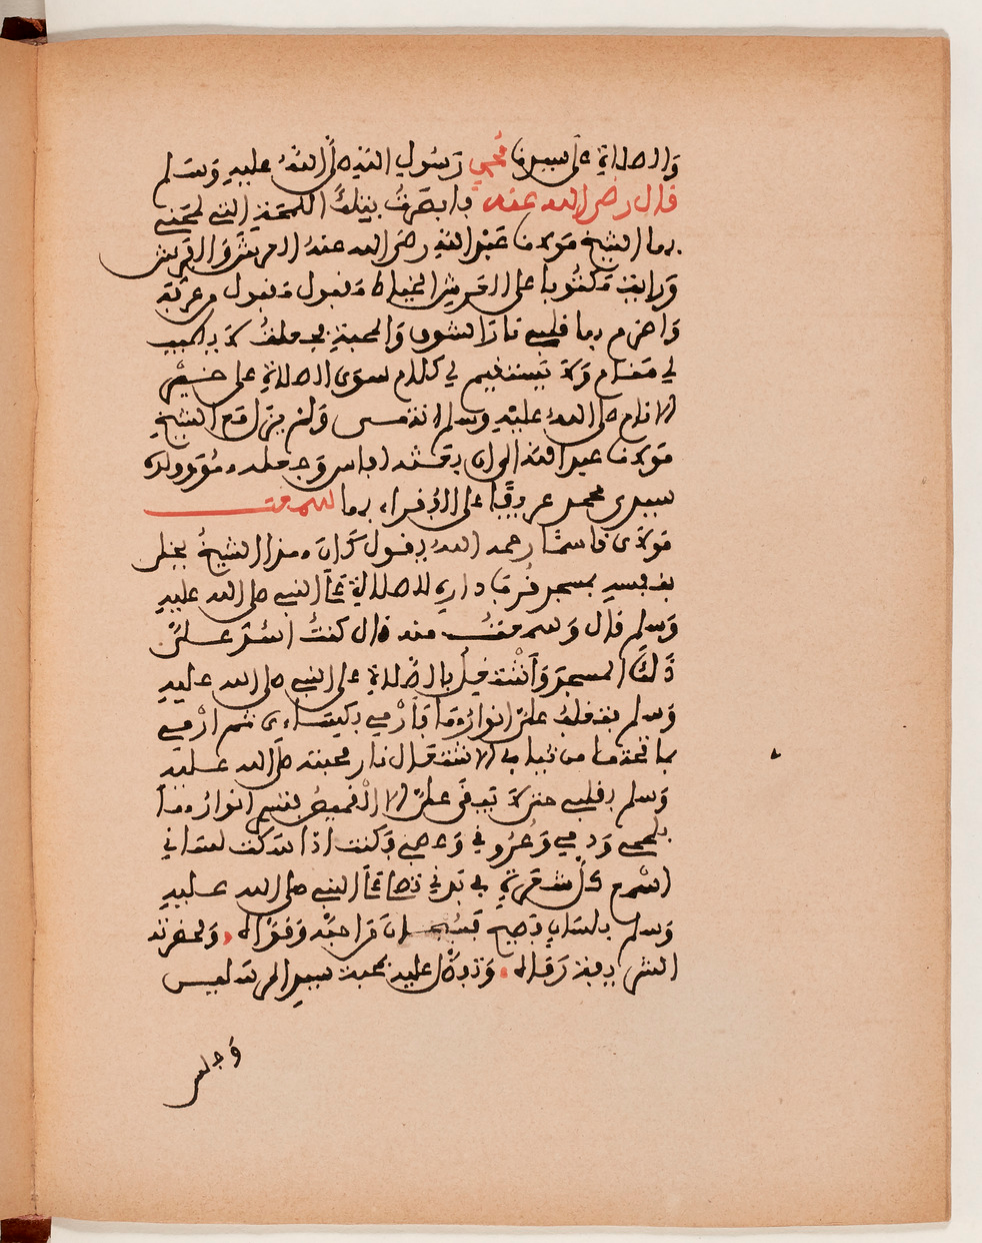 والصلاة على سيدنا محمد رسول الله صلى الله عليه وسلم
قال رضي الله عنه فانصرفت بتلك اللمحة التي لمحني
بها الشيخ مولانا عبد الله رضي الله عنه العرش والفرش
ورأيت مكتوبا على العرش الخياط مقبول مقبول وعزته
واضرم بها قلبي نار الشوق والمحبة فجعلت لا يطيب
لي مقام ولا يستقيم لي كلام سوى الصلاة على خير
الانام صلى الله عليه وسلم انتهى ولم يزل مع الشيخ
مولانا عبد الله الى ان بعثه لفاس وجعله هو وولده
سيدي محمد عريفا على الفقراء بها سمعت
مولاي قاسما رحمه الله يقول كان هذا الشيخ يخلو
بنفسه بمسجد قرب داره للصلاة على النبي صلى الله عليه
وسلم قال وسمعت منه قال كنت اسد علي
ذلك المسجد واشتغل بالصلاة على النبي صلى الله عليه
وسلم فتغلب علي انوارها فأرمي بكساءي ثم ارمي
بما تحتها من ثيابي لاشتعال نار محبته صلى الله عليه
وسلم بقلبي حتى لا يبقى علي الا القميص فتسري انوارها
بلحمي ودمي وعروقي وعصبي وكنت اذا سكت لساني
اسمع كل شعرة في بدني تصلي على النبي صلى الله عليه
وسلم بلسان فصيح فسبحان من احبه وقواله ولحضرته
الشريفة رقاه وتفضل عليه بمحبة سيد المرسليين
وجلس